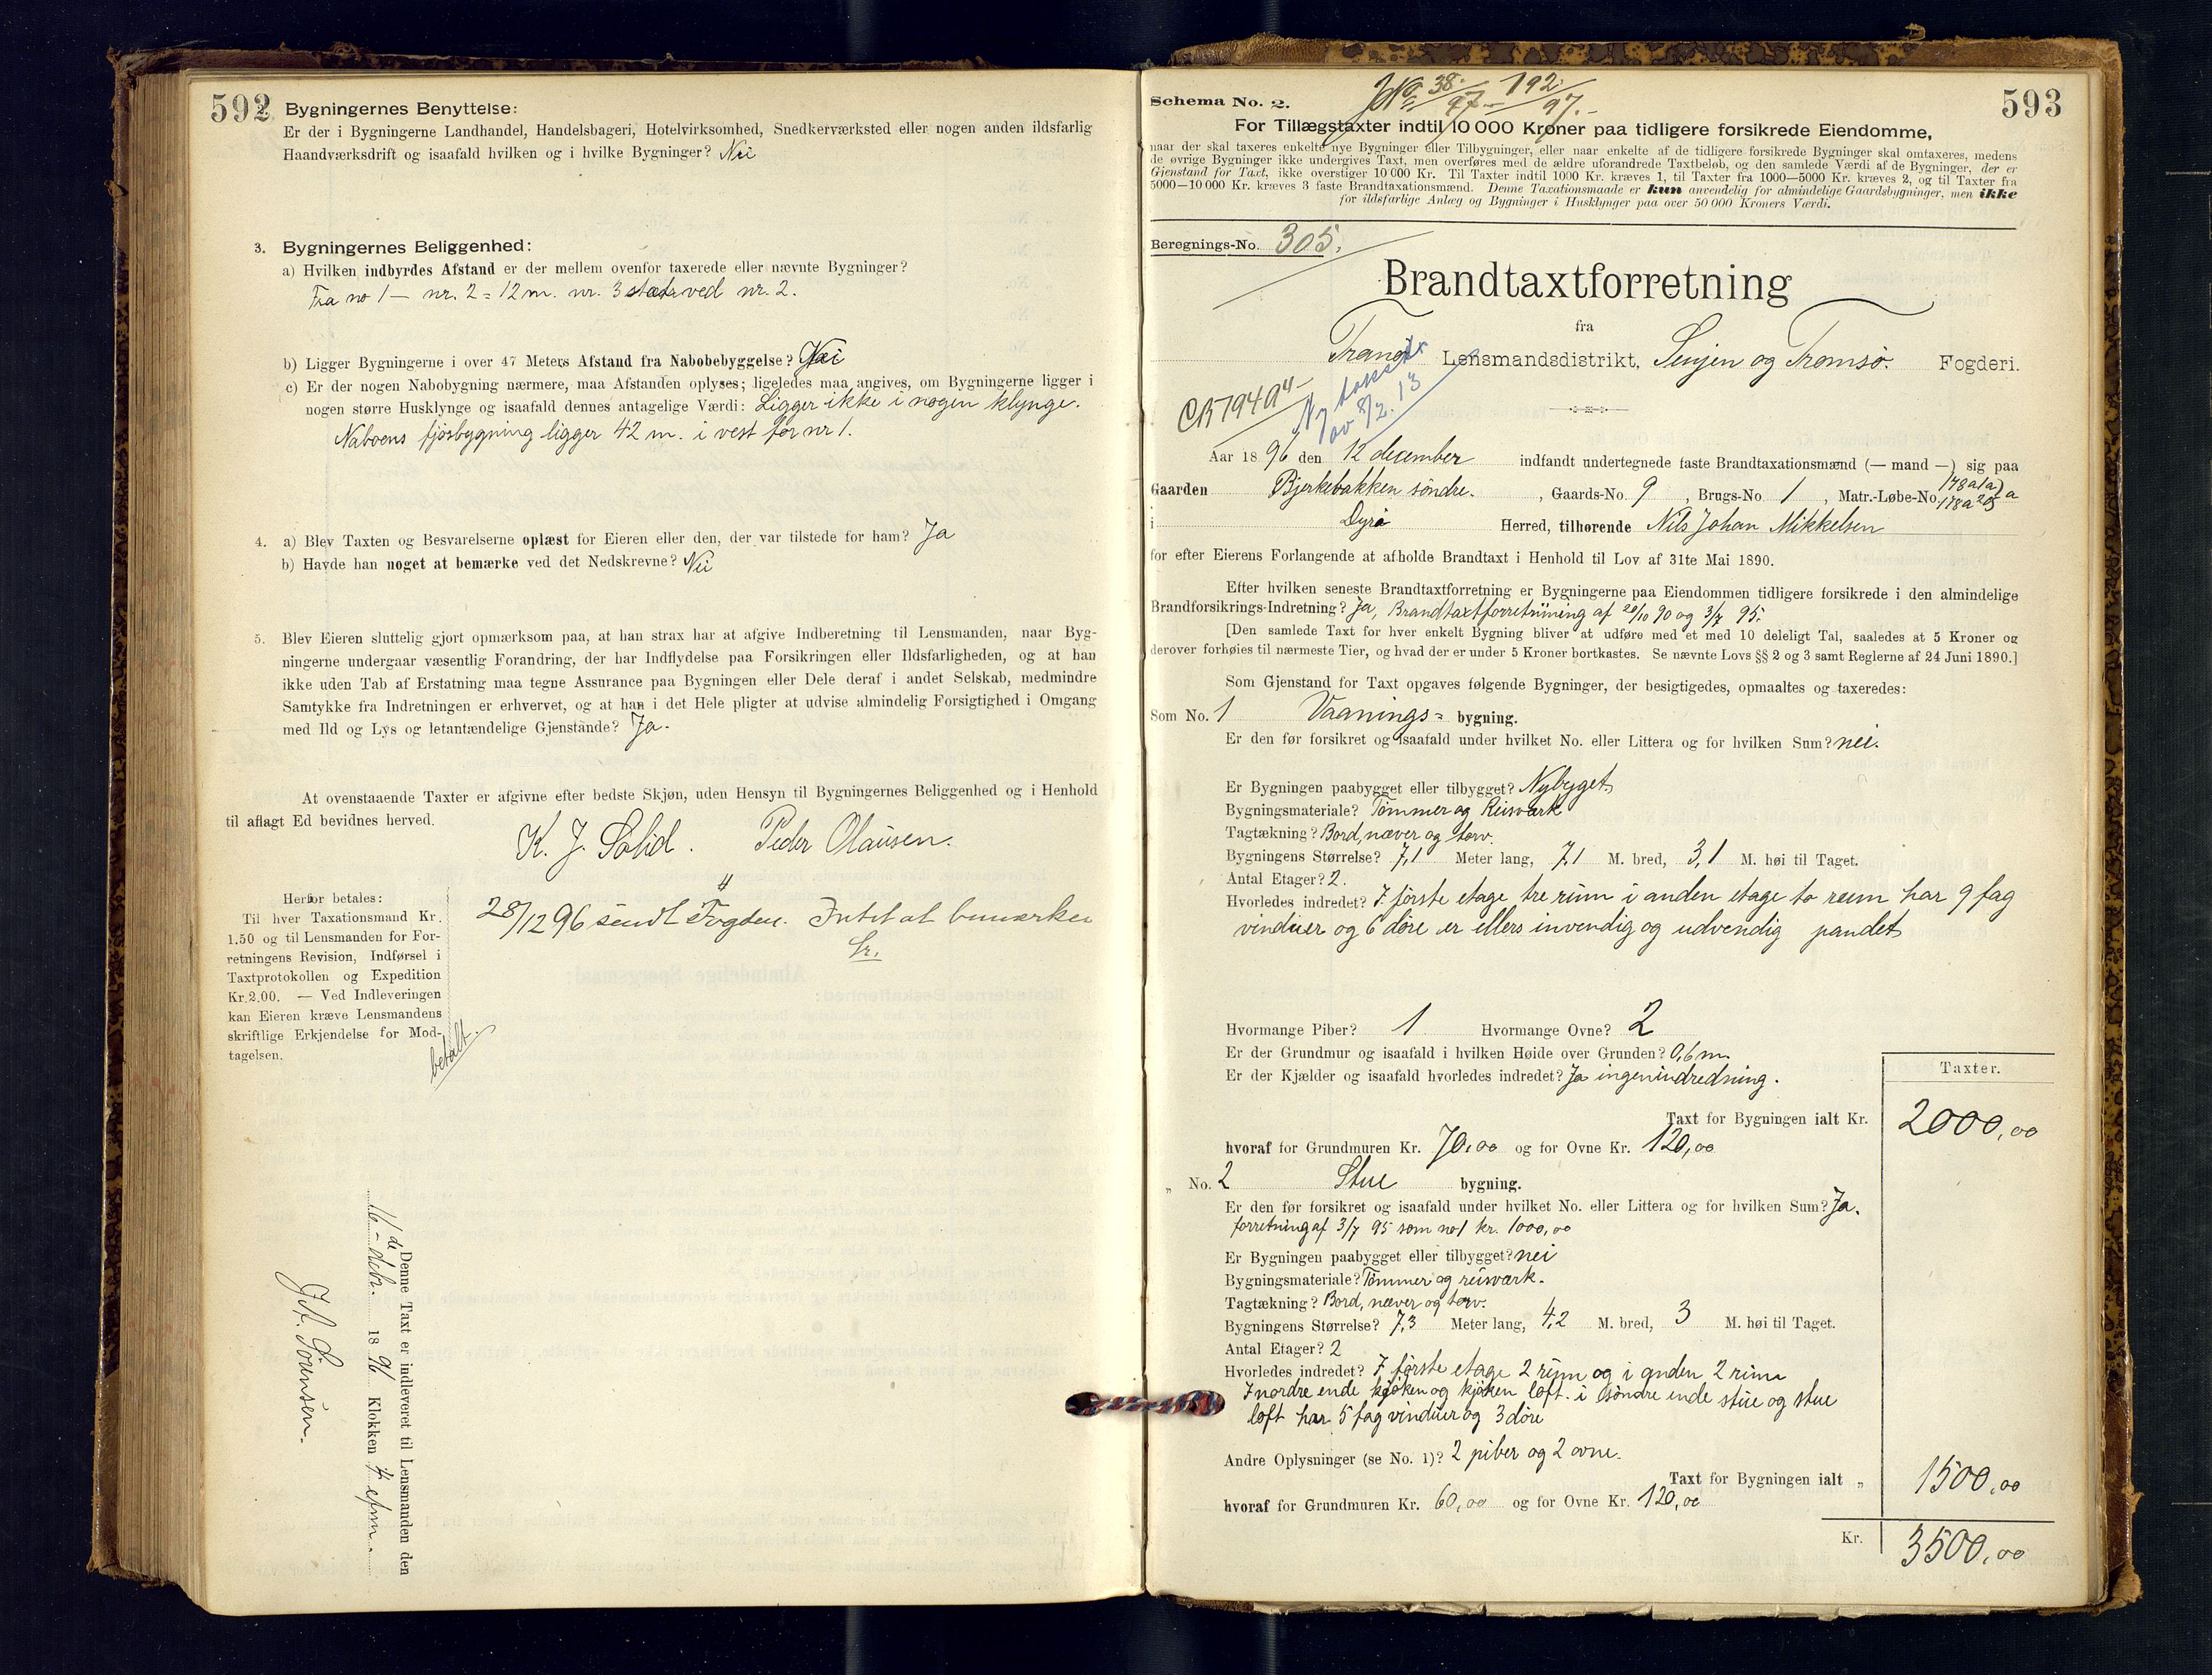 592
Bygningernes Benyttelse:
Er der i Bygningerne Landhandel, Handelsbageri, Hotelvirksomhed, Snedkerværksted eller nogen anden ildsfarlig
Haandværksdrift og isaafald hvilken og i hvilke Bygninger? Nei
3. Bygningernes Beliggenhed:
a) Hvilken indbyrdes Afstand er der mellem ovenfor taxerede eller nævnte Bygninger?
Fra no 1 – nr. 2 = 12 m. nr. 3 ved nr. 2.
b) Ligger Bygningerne i over 47 Meters Afstand fra Nabobebyggelse? Nei
c) Er der nogen Nabobygning nærmere, maa Afstanden oplyses; ligeledes maa angives, om Bygningerne ligger i
nogen større Husklynge og isaafald dennes antagelige Værdi: Ligger ikke i nogen klynge.
Naboens fjösbygning ligger 42 m. i vest for nr 1.
4. a) Blev Taxten og Besvarelserne oplæst for Eieren eller den, der var tilstede for ham? Ja
b) Havde han noget at bemærke ved det Nedskrevne? Nei
5. Blev Eieren sluttelig gjort opmærksom paa, at han strax har at afgive Indberetning til Lensmanden, naar Byg-
ningerne undergaar væsentlig Forandring, der har Indflydelse paa Forsikringen eller Ildsfarligheden, og at han
ikke uden Tab af Erstatning maa tegne Assurance paa Bygningen eller Dele deraf i andet Selskab, medmindre
Samtykke fra Indretningen er erhvervet, og at han i det Hele pligter at udvise almindelig Forsigtighed i Omgang
med Ild og Lys og letantændelige Gjenstande? Ja.
At ovenstaaende Taxter er afgivne efter bedste Skjøn, uden Hensyn til Bygningernes Beliggenhed og i Henhold
til aflagt Ed bevidnes herved.
K. J. Solid. Peder Olausen.
Herfor betales:
Til hver Taxationsmand Kr.
1.50 og til Lensmanden for For-
retningens Revision, Indførsel i
Taxtprotokollen og Expedition
Kr. 2.00. — Ved Indleveringen
kan Eieren kræve Lensmandens
skriftlige Erkjendelse for Mod-
tagelsen.
betalt.
28/12 96 sendt Fogden. Intet at bemærke
Denne Taxt er indleveret til Lensmanden den
16de debr. 1896 Klokken 4 efm.
Sörensen.
593
Schema No. 2.
No 38/97 – 192/97.
For Tillægstaxter indtil 10 000 Kroner paa tidligere forsikrede Eiendomme,
naar der skal taxeres enkelte nye Bygninger eller Tilbygninger, eller naar enkelte af de tidligere forsikrede Bygninger skal omtaxeres, medens
de øvrige Bygninger ikke undergives Taxt, men overføres med de ældre uforandrede Taxtbeløb, og den samlede Værdi af de Bygninger, der er
Gjenstand for Taxt, ikke overstiger 10 000 Kr. Til Taxter indtil 1000 Kr. kræves 1, til Taxter fra 1000—5000 Kr. kræves 2, og til Taxter fra
5000—10 000 Kr. kræves 3 faste Brandtaxationsmænd. Denne Taxationsmaade er kun anvendelig for almindelige Gaardsbygninger, men ikke
for ildsfarlige Anlæg og Bygninger i Husklynger paa over 50 000 Kroners Værdi.
Beregnings-No. 305.
Brandtaxtforretning
fra
Tranö Lensmandsdistrikt, Senjen og Tromsö. Fogderi.
Ny takst
av 8/2. 13
Aar 1896 den 12 december indfandt undertegnede faste Brandtaxationsmænd (— mand —) sig paa
Gaarden Bjerkebakken söndre. , Gaards-No. 9 , Brugs-No. 1 , Matr.-Løbe-No.
i Dyrö Herred, tilhørende Nils Johan Mikkelsen
for efter Eierens Forlangende at afholde Brandtaxt i Henhold til Lov af 31te Mai 1890.
Efter hvilken seneste Brandtaxtforretning er Bygningerne paa Eiendommen tidligere forsikrede i den almindelige
Brandforsikrings-Indretning? Ja, Brandtaxtforretning af 20/10 90 og 3/7 95.
[Den samlede Taxt for hver enkelt Bygning bliver at udføre med et med 10 deleligt Tal, saaledes at 5 Kroner og
derover forhøies til nærmeste Tier, og hvad der er under 5 Kroner bortkastes. Se nævnte Lovs §§ 2 og 3 samt Reglerne af 24 Juni 1890.]
Som Gjenstand for Taxt opgaves følgende Bygninger, der besigtigedes, opmaaltes og taxeredes:
Som No. 1 Vaanings= bygning.
Er den før forsikret og isaafald under hvilket No. eller Littera og for hvilken Sum? nei.
Er Bygningen paabygget eller tilbygget? Nybygget
Bygningsmateriale? Tömmer og Reisværk
Tagtækning? Bord, næver og torv.
Bygningens Størrelse? 7,1 Meter lang, 7,1 M. bred, 3,1 M. høi til Taget.
Antal Etager? 2.
Hvorledes indredet? I förste etage tre rum i anden etage to rum har 9 fag
vinduer og 6 döre er ellers invendig og udvendig pandet
Hvormange Piber? 1 Hvormange Ovne? 2
Er der Grundmur og isaafald i hvilken Høide over Grunden? 0,6 m.
Er der Kjælder og isaafald hvorledes indredet? Ja ingen indredning.
Taxter.
Taxt for Bygningen ialt Kr. 2000,00
hvoraf for Grundmuren Kr. 70,00 og for Ovne Kr. 120,00
„ No. 2 Stue bygning.
Er den før forsikret og isaafald under hvilket No. eller Littera og for hvilken Sum? Ja.
forretning af 3/7 95 som no 1 kr. 1000,00
Er Bygningen paabygget eller tilbygget? nei
Bygningsmateriale? Tömmer og reisværk.
Tagtækning? Bord, næver og torv.
Bygningens Størrelse? 7,3 Meter lang, 4,2 M. bred, 3 M. høi til Taget.
Antal Etager? 2
Hvorledes indredet? I förste etage 2 rum og i anden 2 rum
I nordre ende kjöken og kjöken loft. i söndre ende stue og stue
loft har 5 fag vinduer og 3 döre
Andre Oplysninger (se No. 1)? 2 piber og 2 ovne.
Taxt for Bygningen ialt „ 1500,00
hvoraf for Grundmuren Kr. 60,00 og for Ovne Kr. 120,00
Kr. 3500,00